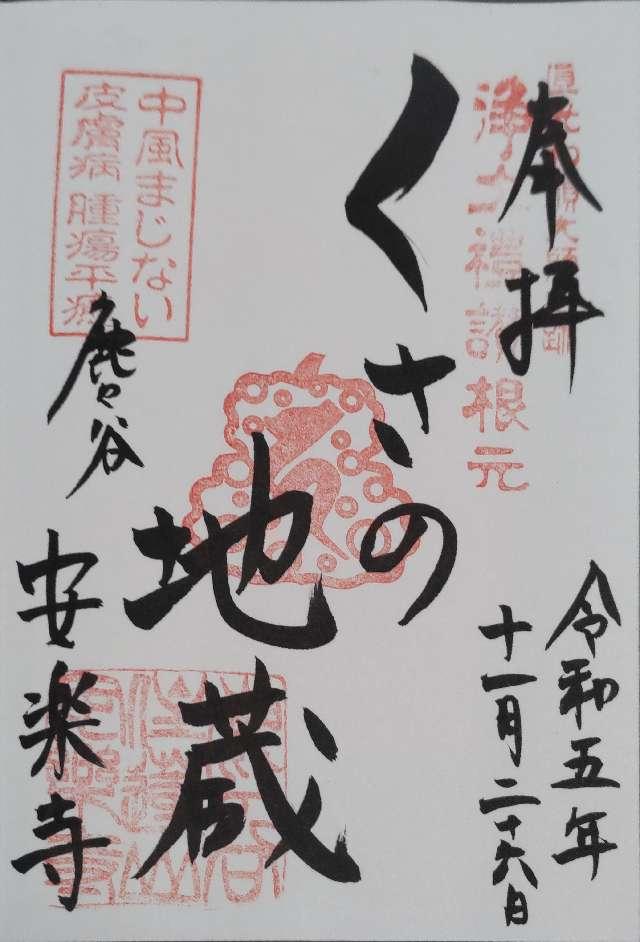 奉拝
浄土禮讃根元
令和五年
十一月二十六日
くさの
地蔵
中風まじない
皮膚病 腫瘍平癒
鹿ヶ谷
安楽寺